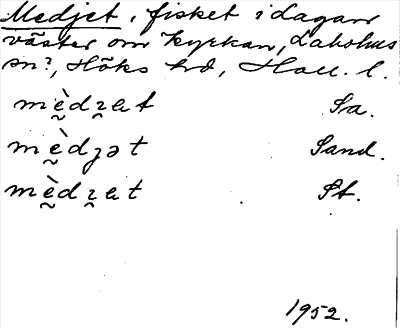 Medjet, fisket i dagar
väster om kyrkan, Laholms
sn?, Höks hd, Hall. l.
mḛ̀dʒ̰ɐt Sa.
mḛ̀dʒət Sand.
mḛ̀dʒ̰ɐt St.
1952.